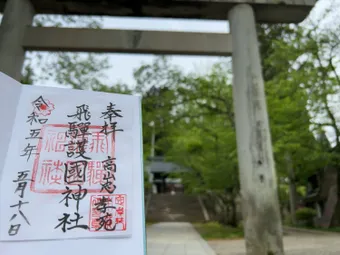 奉拝
高山忠孝苑
飛騨護國神社
令和五年
五月十八日